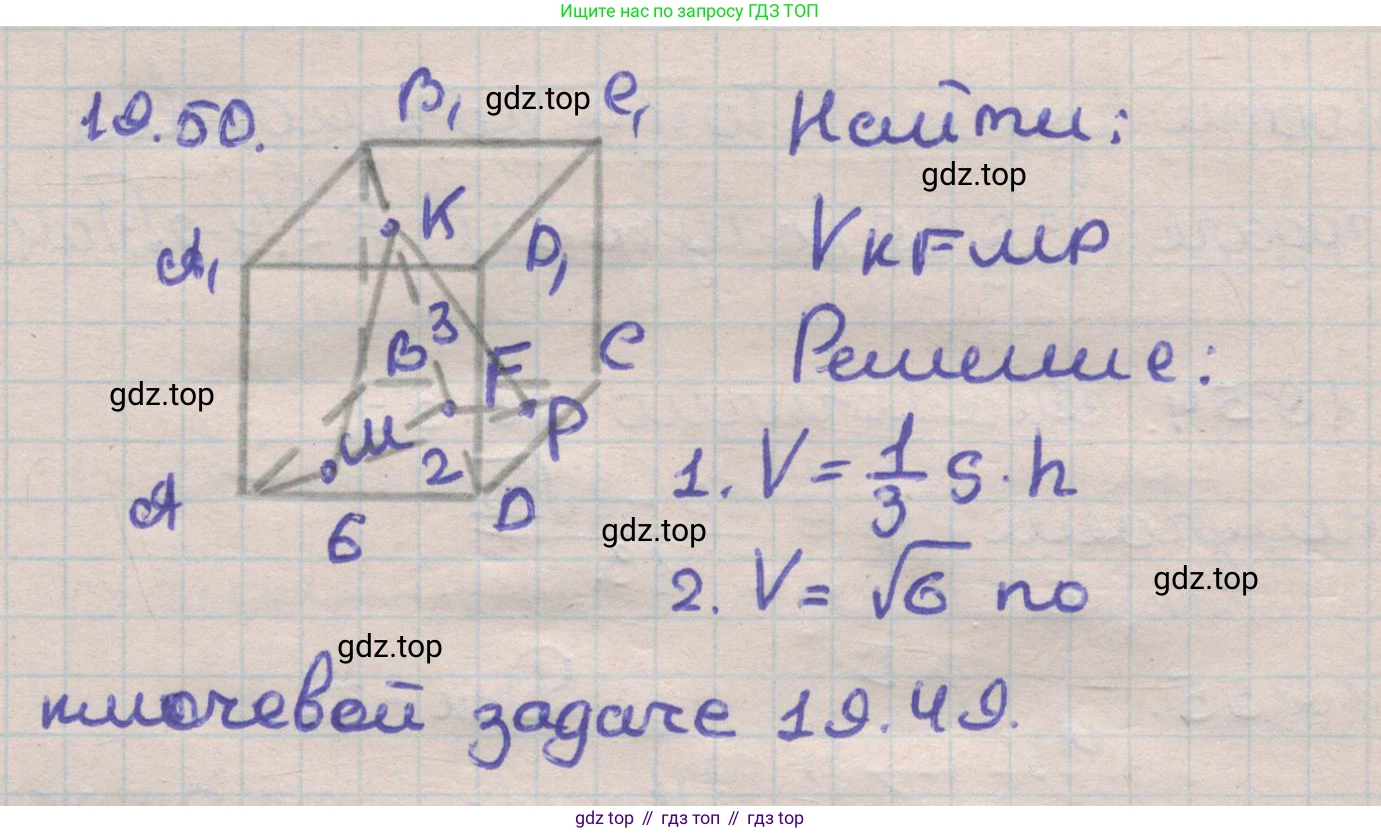 Ищите нас по запросу ГДЗ ТОП
19.50.
B₁ gdz.top C₁
Найти:
gdz.top
K
A₁ D₁
VKFMP
3
B F C
Решение:
gdz.top
M P
2
1. V = 1/3 S · h
A D
6
gdz.top
2. V = √6 по
gdz.top
gdz.top
ключевой задаче 19.49.
gdz top // гдз топ // гдз top